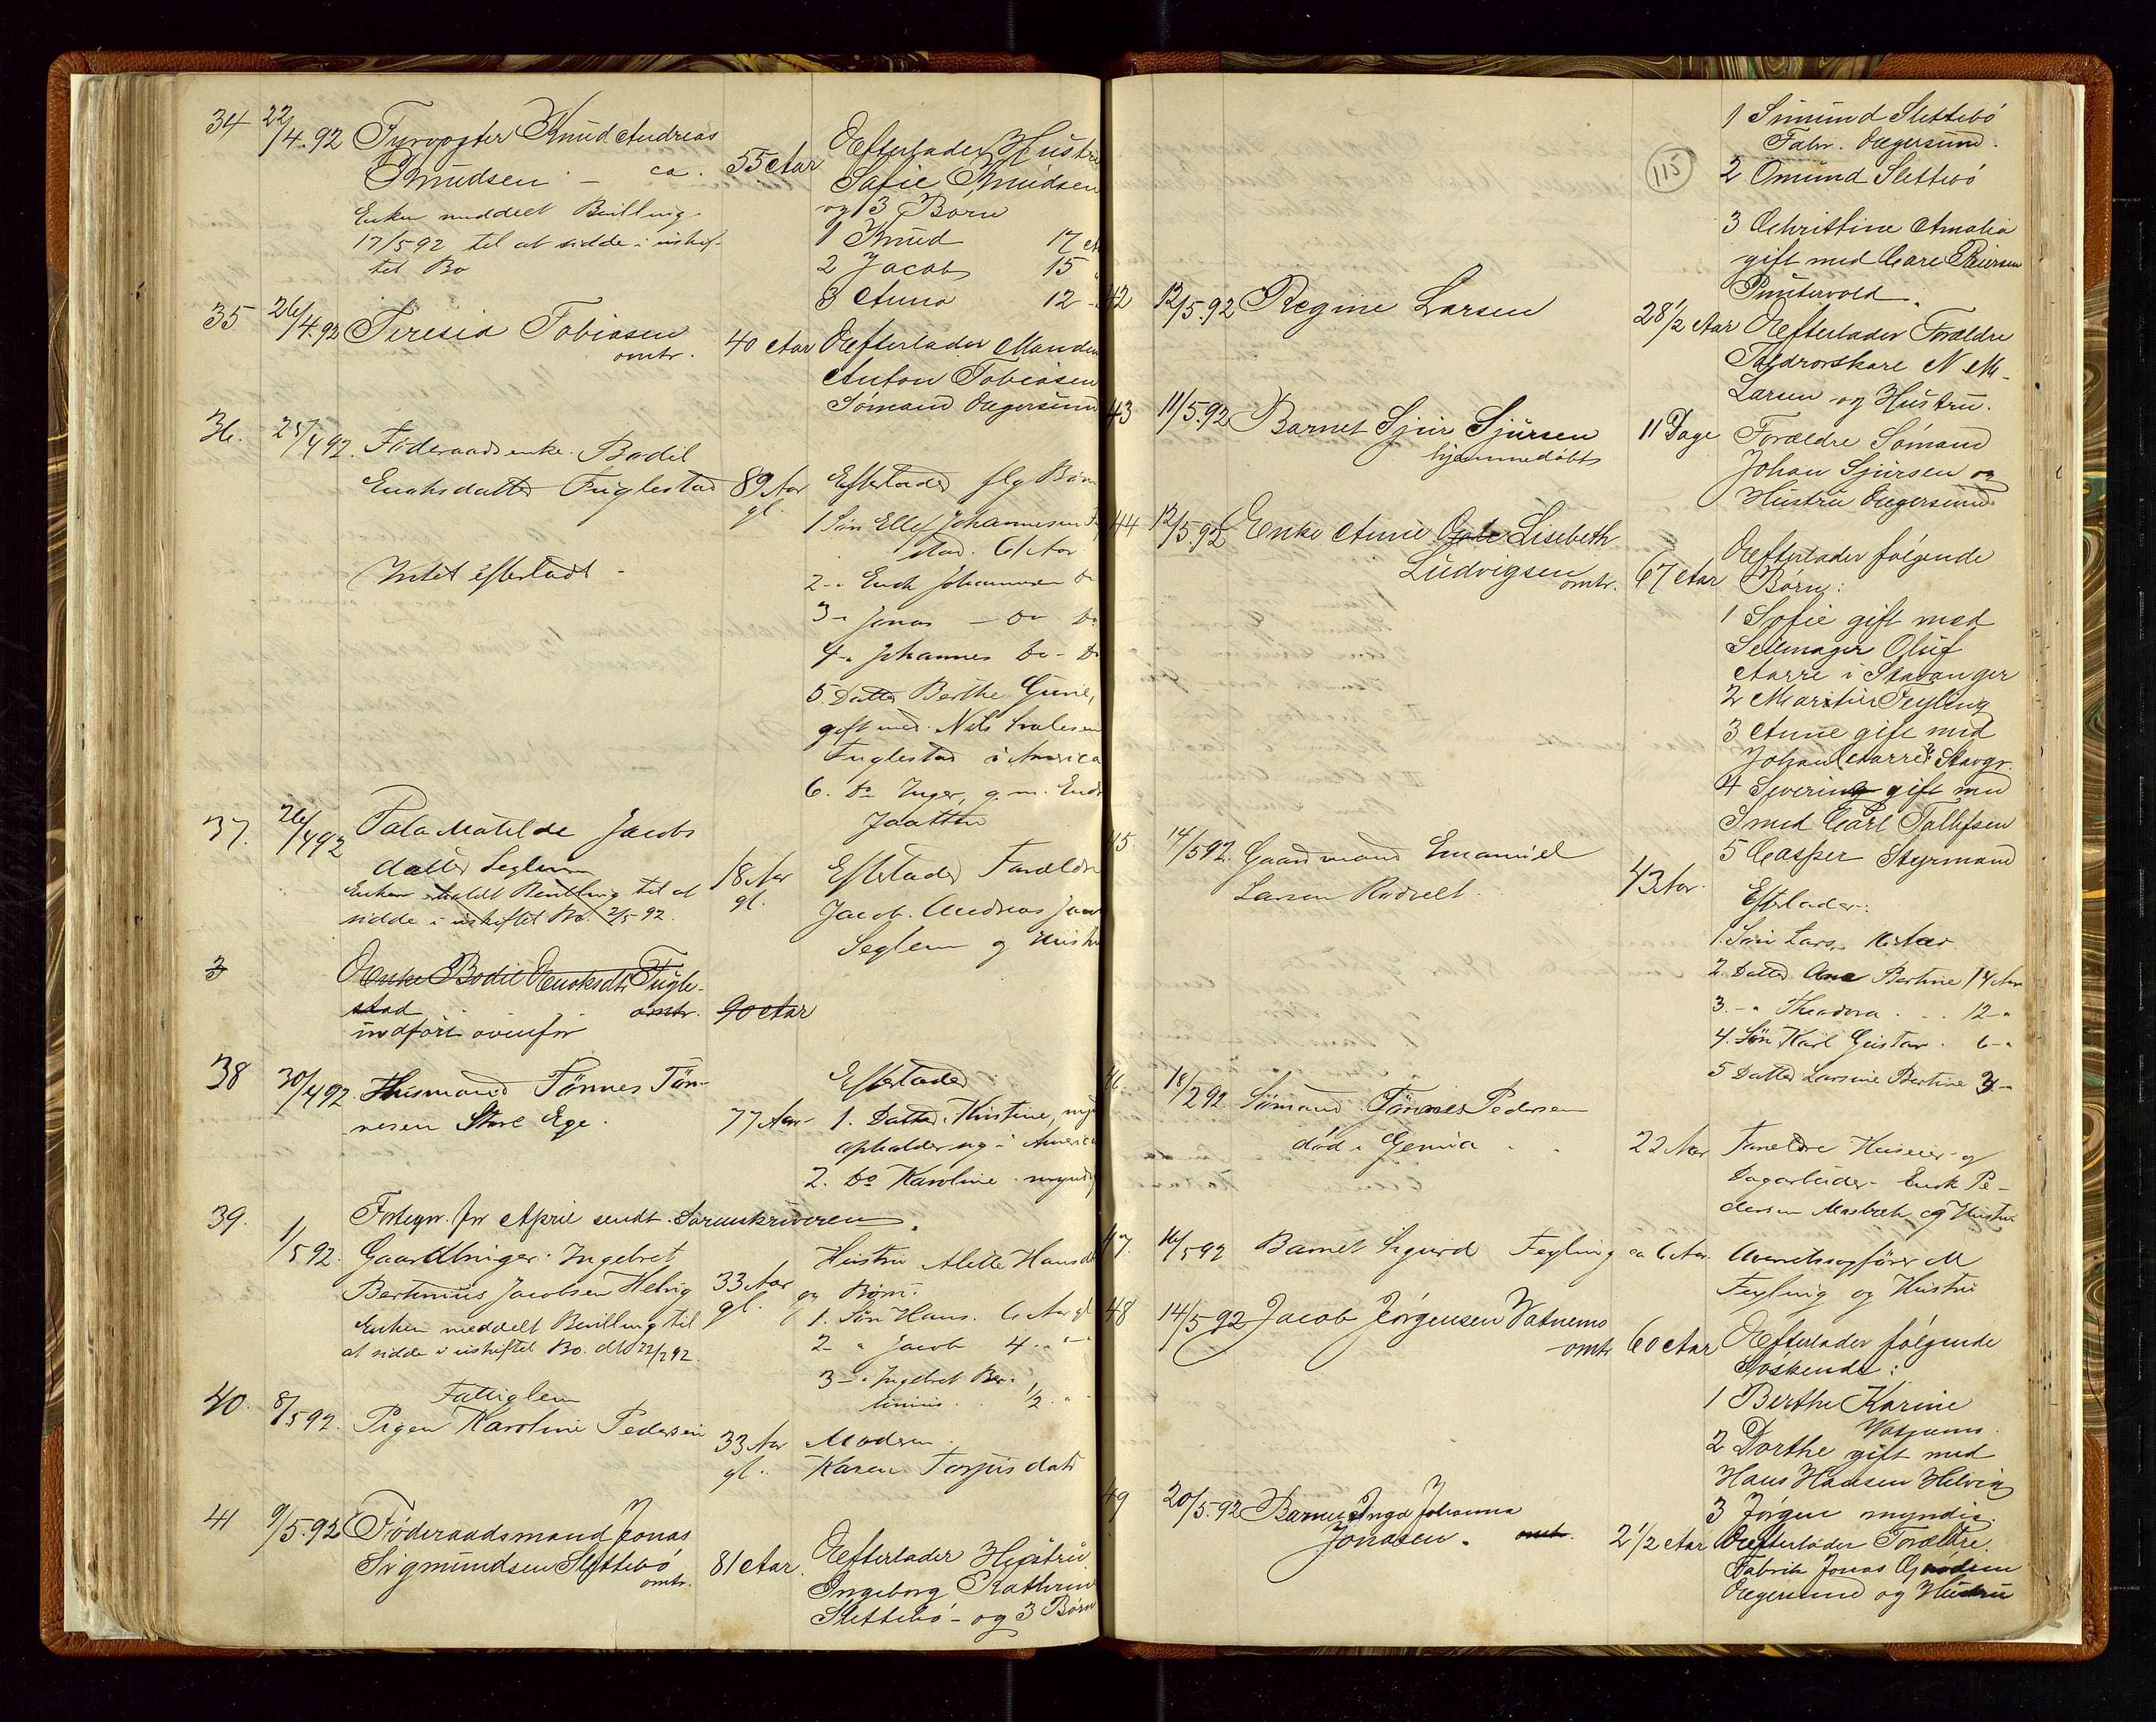 34 22/4.92 Fyrvogter Knud Andreas
Knudsen — ca. 55 Aar
Enken meddelt Bevilling
17/5 92 til at sidde i uskif-
tet Bo
Efterlader Hustru
Sofie Knudsen
og 3 Børn
1 Knud 17
2 Jacob 15
3 Anna 12
35 26/4.92 Teresia Tobiasen
omtr. 40 Aar
Efterlader Manden
Anton Tobiasen
Sömand Egersund
36. 25/4 92. Føderaadsenke Bodil
Enoksdatter Fuglestad 89 Aar
gl.
Intet efterladt -
Efterlader flg Børn
1 Søn Ellef Johannesen
stad. 61 Aar
2 - Enok Johannesen
3 - Jonas — Do
4 - Johannes Do
5. Datter Berthe Gurine,
gift med Nils
Fuglestad i America
6. Do Inger, g. m.
Jaatten
37. 26/4 92 Tala Matilde Jacobs
datter Seglem 18 Aar
gl.
Enken meddelt Bevilling til at
sidde i uskiftet Bo 2/5 92.
Efterlader Forældre
Jacob Andreas
Seglem og Hustru
3 Enke Bodil Enoksdtr Fugle-
stad omtr. 90 Aar
indført ovenfor
38 30/4 92. Husmand Tönnes Tön-
nesen Store Ege. 77 Aar
Efterlader
1. Datter Kirstine,
opholder sig i America
2. Do Karoline myndig
Fortegn. for April sendt Sorenskriveren.
39. 1/5 92. Gaardbruger Ingebret
Bertinius Jacobsen Helvig 33 Aar
gl.
Enken meddelt Bevilling til
at sidde i uskiftet Bo.
Hustru Alette Hansdtr
og Børn:
1. Søn Hans. 6 Aar gl
2 - " Jacob 4 "
3 - " Ingebret Ber-
tinius 1/2 "
40. 8/5 92. Fattiglem
Pigen Karoline Pedersen 33 Aar
gl.
Moderen
Karen Torjusdatr
41 9/5.92 Föderaadsmand Jonas
Sigmundsen Slettebö
omtr. 81 Aar.
Efterlader Hustru
Ingeborg Kathrine
Slettebö - og 3 Börn
115
1 Simund Slettebö
Fabr. Egersund.
2 Omund Slettebö
3 Christine Amalia
gift med Carl Peersen
Puntervold.
42 12/5.92 Regine Larsen 28 1/2 Aar
Efterlader Forældre
N M
Larsen og Hustru.
43 11/5.92 Barnet Sjur Sjursen 11 Dage
hjemmedöbt
Forældre Sömand
Johan Sjursen og
Hustru Egersund
44 12/5.92 Enke Anne Lisebeth
Ludvigsen omtr. 67 Aar
Efterlader fölgende
Børn:
1 Sofie gift med
Seilmager Oluf
Aarre i Stavanger
2 Feyling
3 Anne gift med
Johan Aarre i Stavgr.
4 Severine gift med
Smed Carl Tollefsen
5 Casper Styrmand
45. 14/5 92. Gaardmand Emanuel
Larsen 43 Aar.
Efterlader:
1. Søn Lars. Aar
2. Datter Ane Bertine 14 Aar
3. - " Theodora 12 "
4. Søn Karl Gustav 6 - "
5 Datter Larsine Bertine 3 -
46. 18/2 92. Sömand Tønnes Pedersen
död i 22 Aar
Forældre Huseier og
Dagarbeider Enok Pe-
dersen og Hustru
47. 16/5 92 Barnet Sigurd Feyling ca 6 Aar.
Overretssagfører M
Feyling og Hustru
48 14/5 92 Jacob Jörgensen Vatnemo
omtr 60 Aar
Efterlader fölgende
Söskende:
1 Berthe Karine
Vatnemo.
2 Dorthe gift med
Hans Hansen Helvig
3 Jörgen myndig.
49 20/5.92 Barnet Inga Johanna
Jonasen. omtr. 2 1/2 Aar
Efterlader Forældre.
Fabrik Jonas
Egersund og Hustru